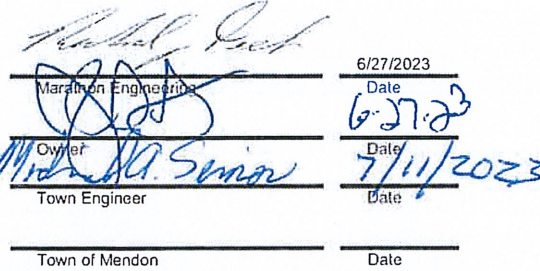 6/27/2023
Marathon Engineering Date
6-27-23
Owner Date
Michael A. Senior 7/11/2023
Town Engineer Date
Town of Mendon Date